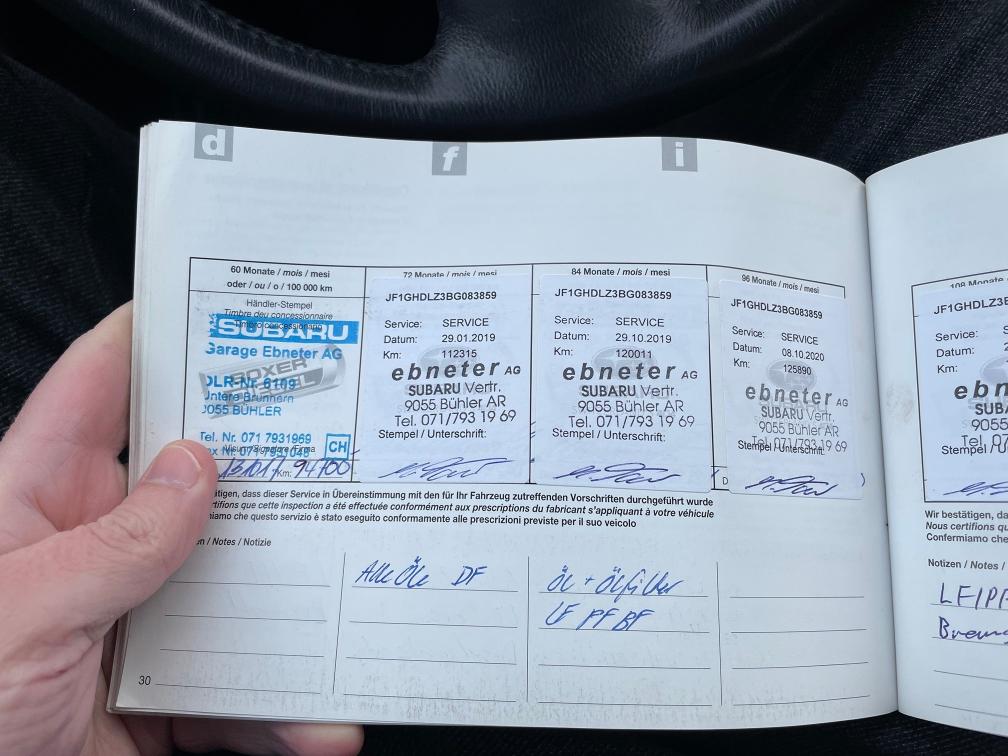 d
f
i
60 Monate / mois / mesi
oder / ou / o / 100 000 km
Händler-Stempel
Timbre du concessionnaire
SUBARU
Garage Ebneter AG
BOXER
DIESEL
DLR-Nr. 6109
Untere Brunnern
9055 BÜHLER
Tel. Nr. 071 7931969
CH
Km: 94700
72 Monate / mois / mesi
JF1GHDLZ3BG083859
Service: SERVICE
Datum: 29.01.2019
Km: 112315
ebneter AG
SUBARU Vertr.
9055 Bühler AR
Tel. 071/793 19 69
Stempel / Unterschrift:
84 Monate / mois / mesi
JF1GHDLZ3BG083859
Service: SERVICE
Datum: 29.10.2019
Km: 120011
ebneter AG
SUBARU Vertr.
9055 Bühler AR
Tel. 071/793 19 69
Stempel / Unterschrift:
96 Monate / mois / mesi
JF1GHDLZ3BG083859
Service: SERVICE
Datum: 08.10.2020
Km: 125890
ebneter AG
SUBARU Vertr.
9055 Bühler AR
Tel. 071/793 19 69
Stempel / Unterschrift:
D
tigen, dass dieser Service in Übereinstimmung mit den für Ihr Fahrzeug zutreffenden Vorschriften durchgeführt wurde
rtifions que cette inspection a été effectuée conformément aux prescriptions du fabricant s'appliquant à votre véhicule
miamo che questo servizio è stato eseguito conformamente alle prescrizioni previste per il suo veicolo
en / Notes / Notizie
Alle Öle DF
Öl + Ölfilter
LF PF BF
30
108 Monate
JF1GHDLZ3
Service:
Datum: 2
Km:
ebn
SUBA
9055
Tel. 07
Stempel / U
Wir bestätigen, da
Nous certifions qu
Confermiamo che
Notizen / Notes /
LF/PF
Brems